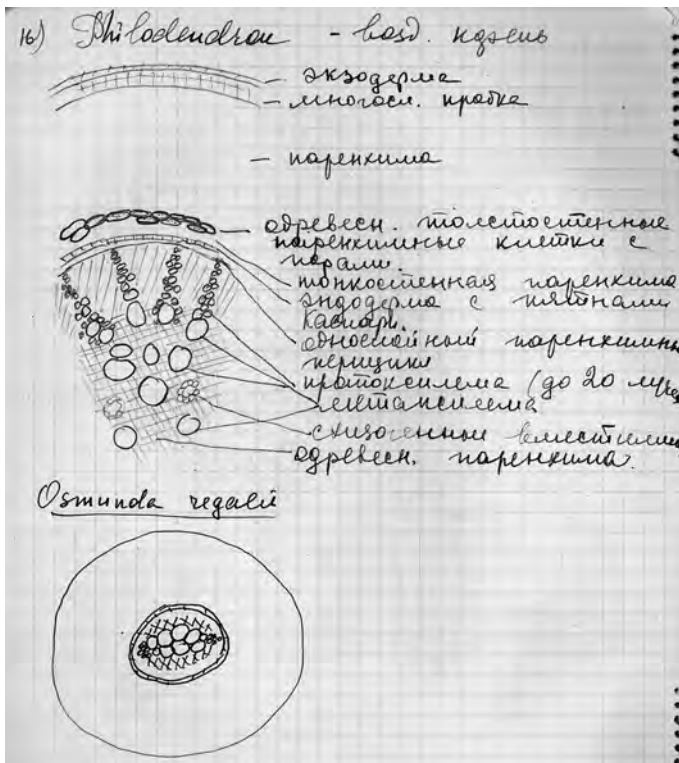 16) Philodendron - возд. корень
- экзодерма
- многосл. пробка
- паренхима
одревесн. толстостенные
паренхимные клетки с
порами.
тонкостенная паренхима
эндодерма с пятнами
Каспари.
однослойный паренхимн
перицикл
протоксилема (до 20 лучей
метаксилема
схизогенные вместилища
одревесн. паренхима.
Osmunda regalis